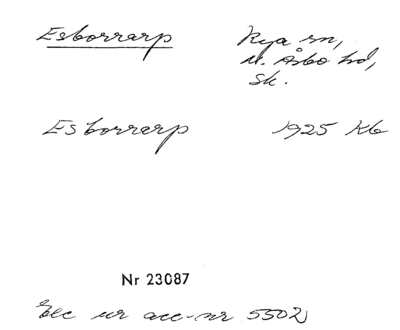 Esborrarp Rya sn,
N. Åsbo hd,
Sk.
Esborrarp 1925 Kb
Nr 23087
Exc ur acc-nr 5502